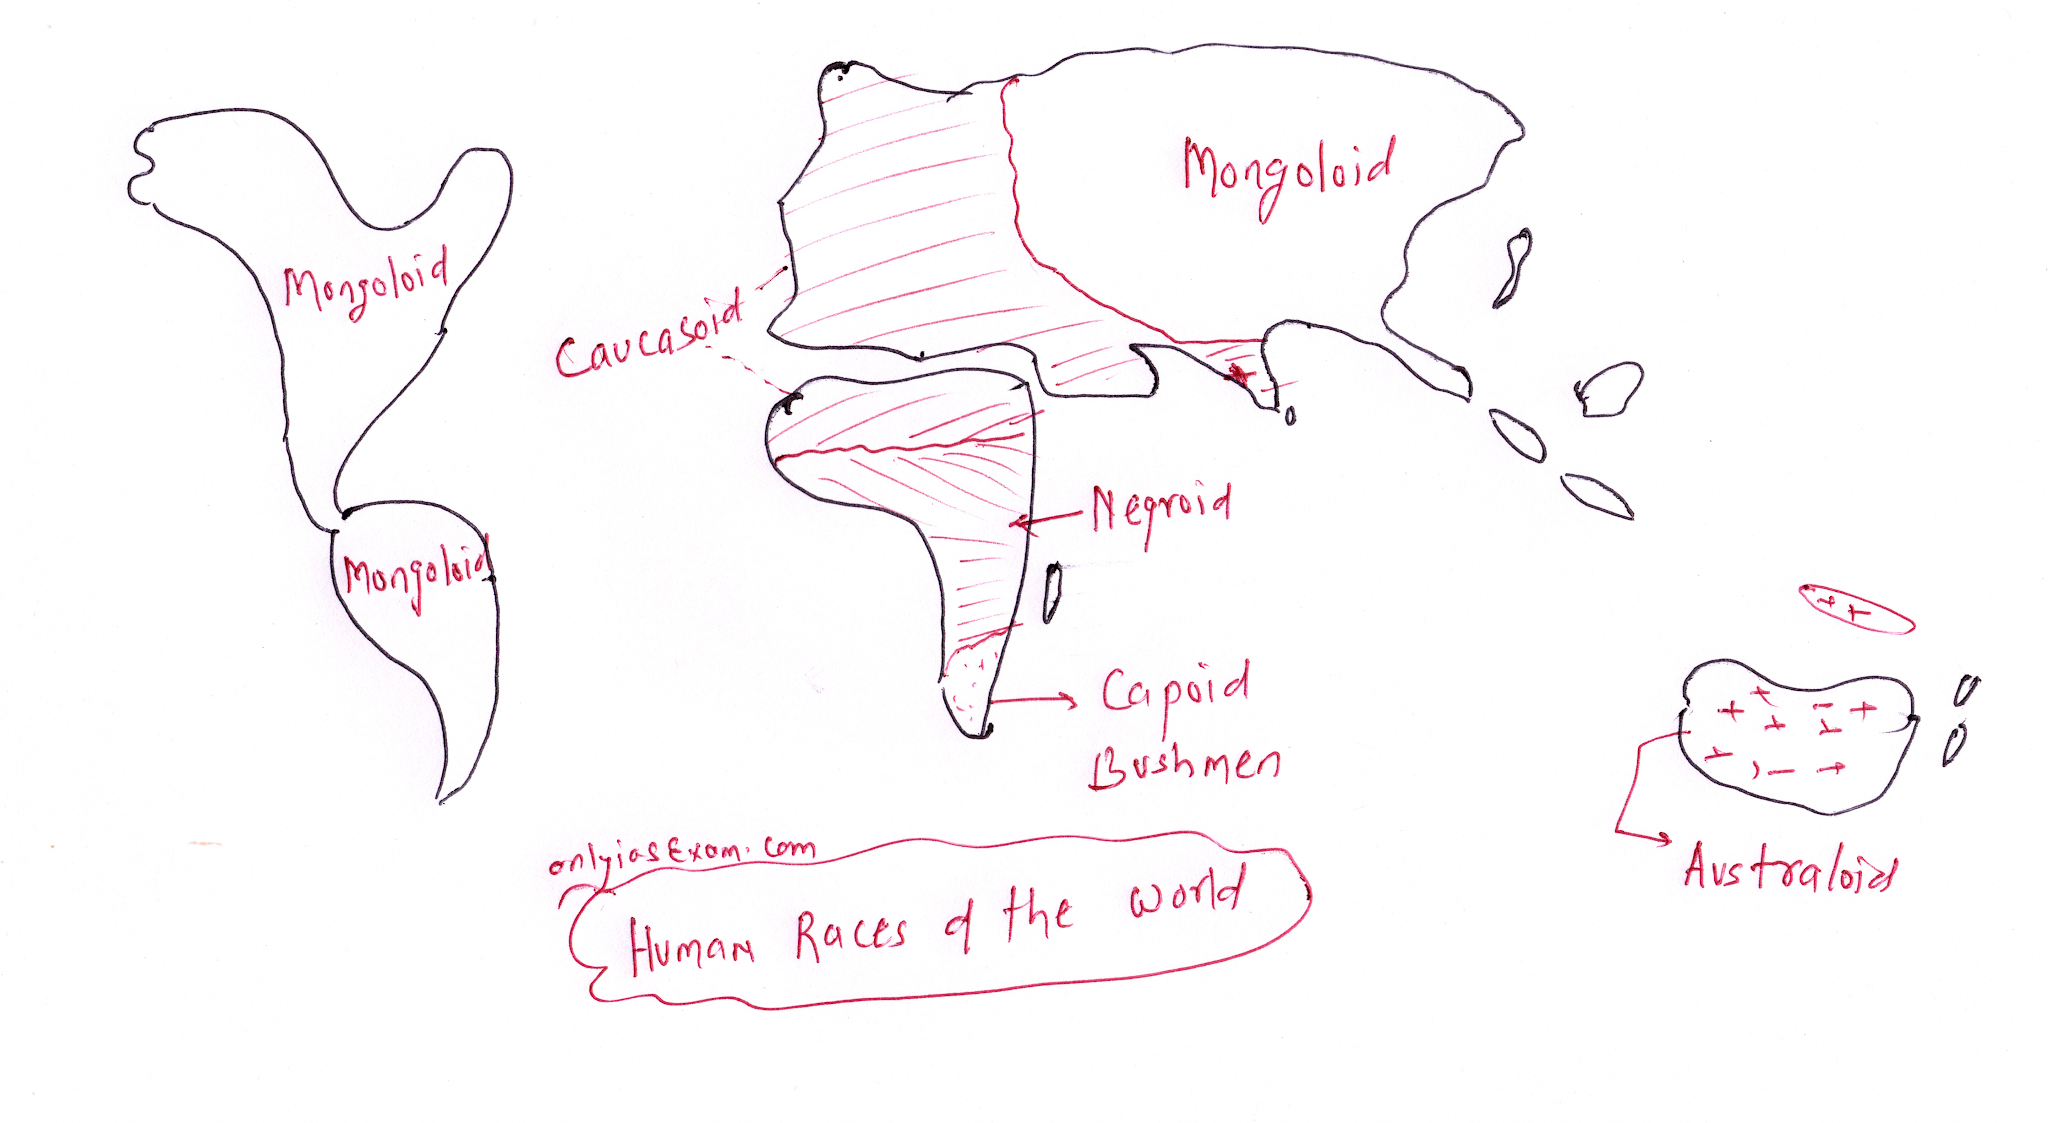 Mongoloid
Mongoloid
Caucasoid
Mongoloid
Negroid
Capoid
Bushmen
Australoid
onlyiasExam.com
Human Races of the world